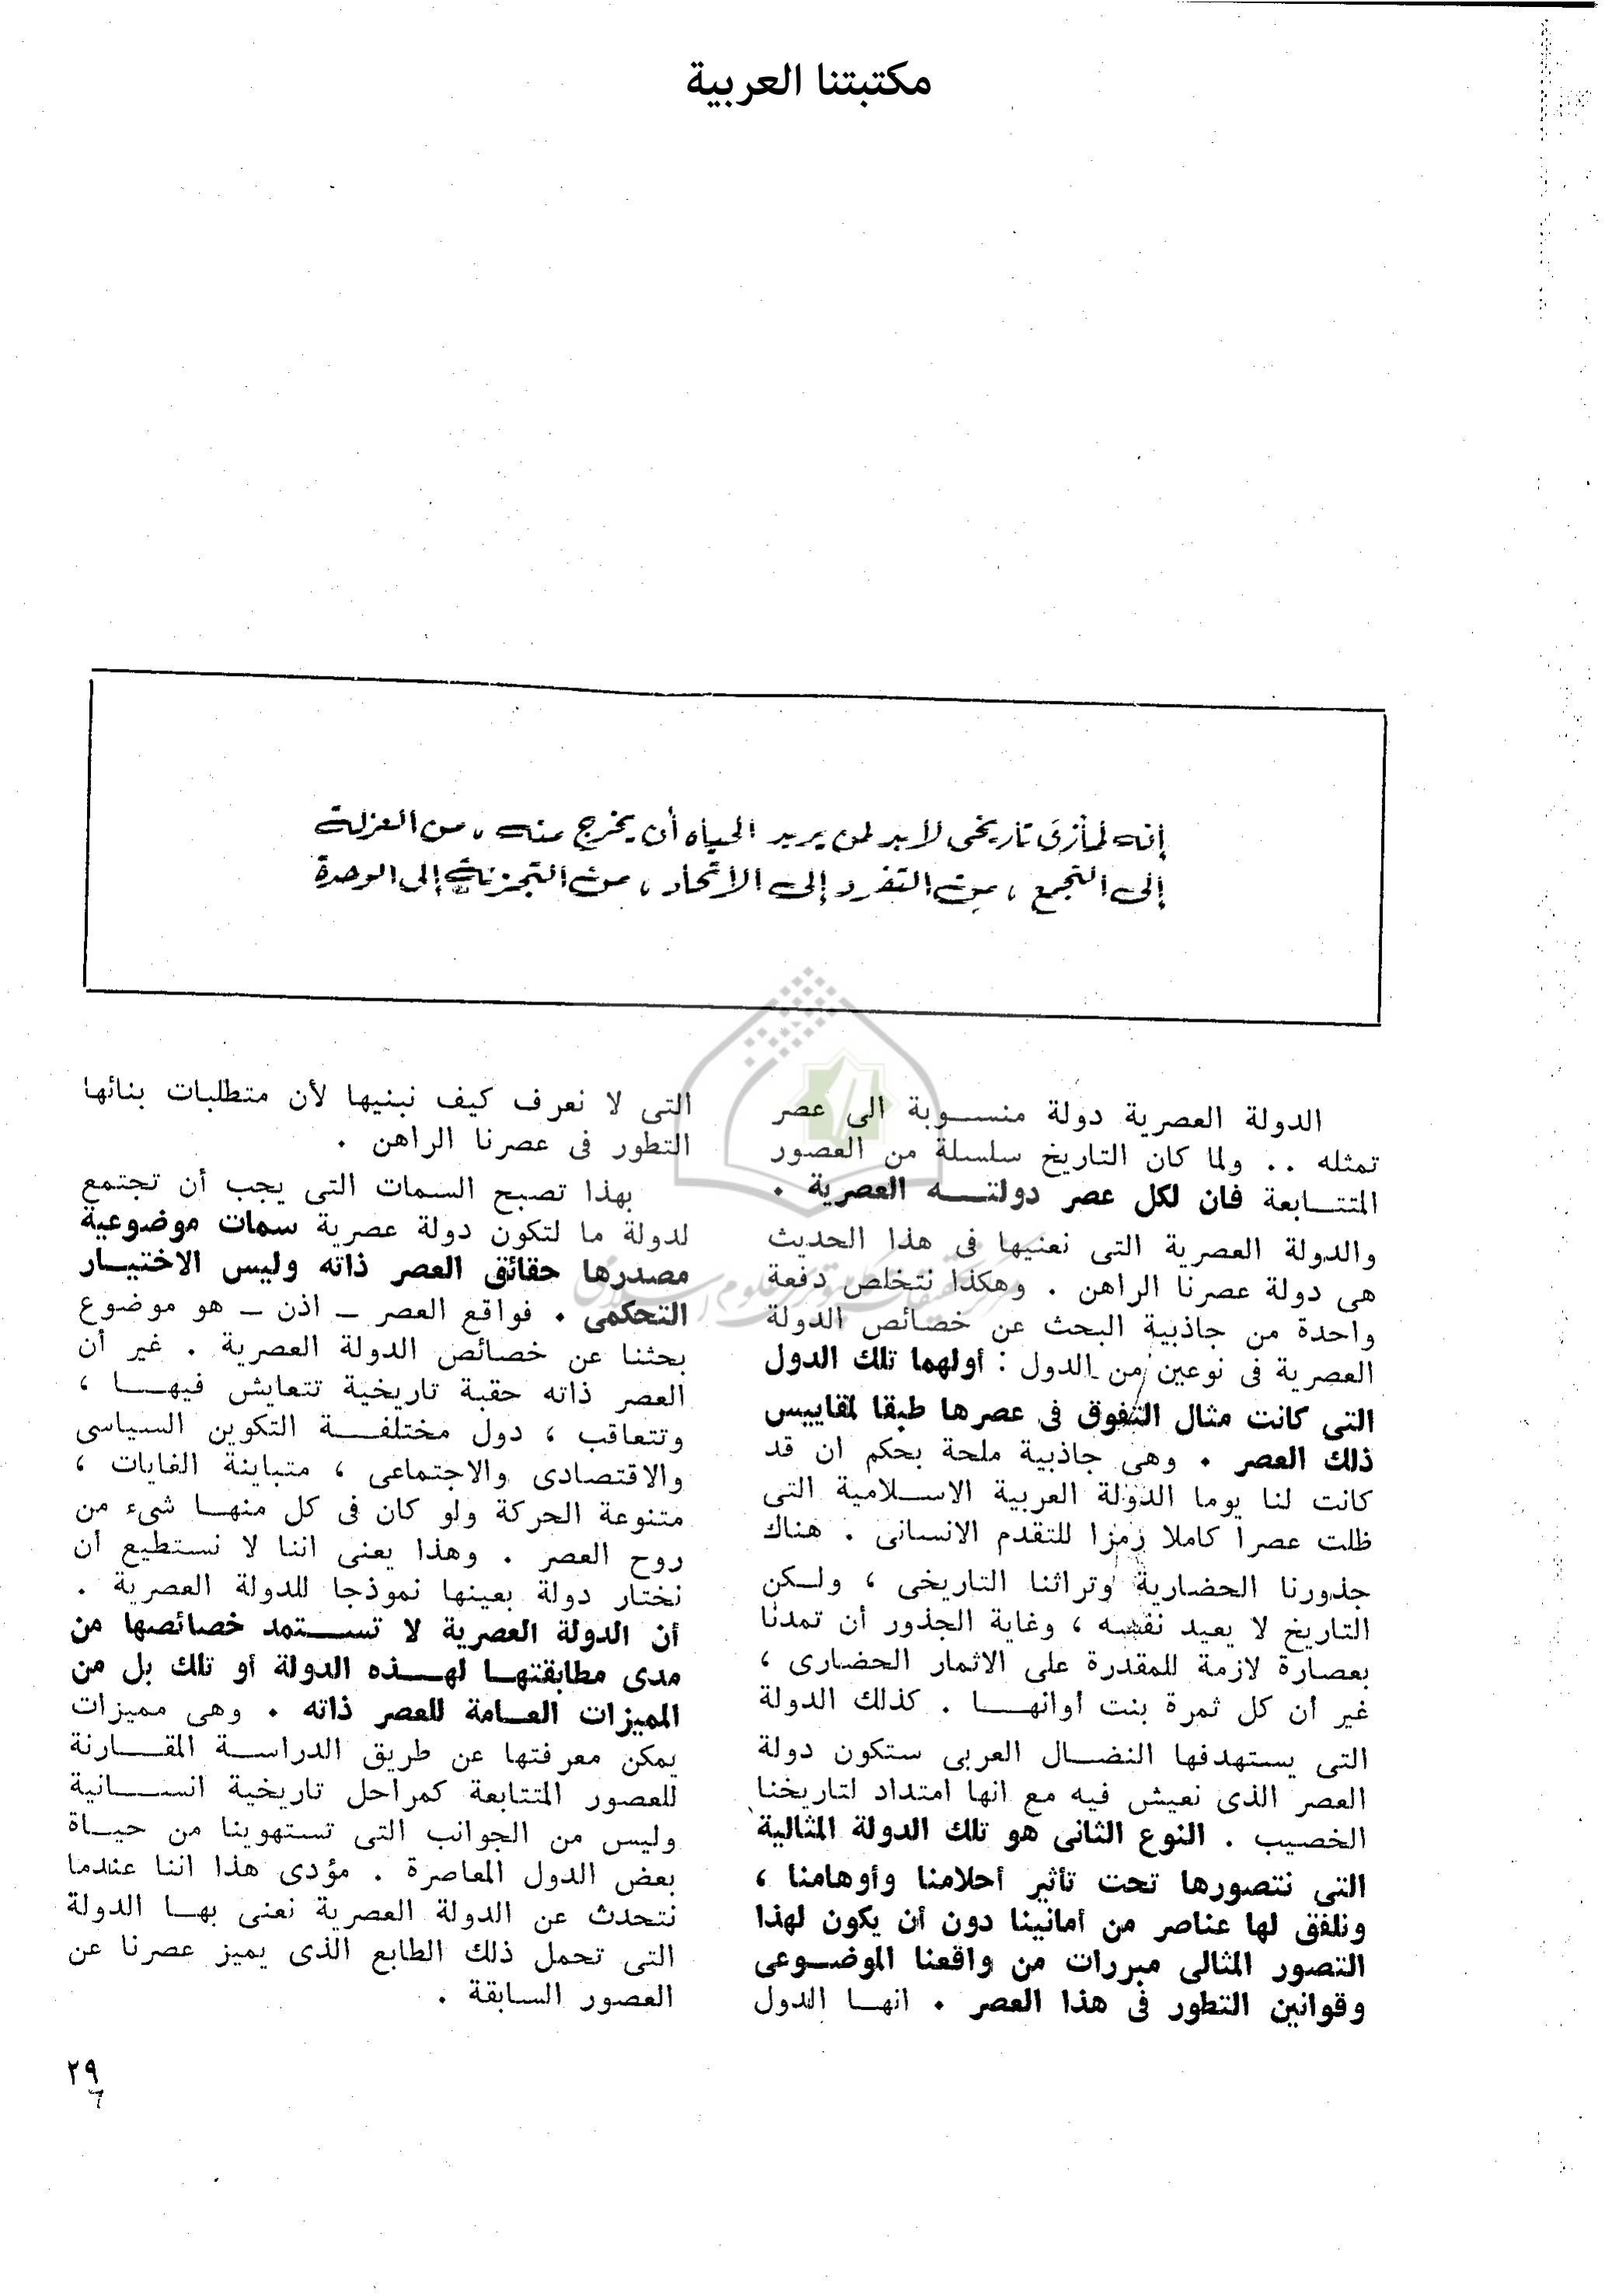 مكتبتنا العربية
إنه لمأزق تاريخى لابد لمن يريد الحياه أن يخرج منه ، من العزلة
إلى التجمع ، من التفرد إلى الاتحاد ، من التجزئة إلى الوحدة
الدولة العصرية دولة منسوبة الى عصر
تمثله .. ولما كان التاريخ سلسلة من العصور
المتتابعة فان لكل عصر دولته العصرية .
والدولة العصرية التى نعنيها فى هذا الحديث
هى دولة عصرنا الراهن . وهكذا نتخلص دفعة
واحدة من جاذبية البحث عن خصائص الدولة
العصرية فى نوعين من الدول : أولهما تلك الدول
التى كانت مثال التفوق فى عصرها طبقا لمقاييس
ذلك العصر . وهى جاذبية ملحة بحكم ان قد
كانت لنا يوما الدولة العربية الاسلامية التى
ظلت عصرا كاملا رمزا للتقدم الانسانى . هناك
جذورنا الحضارية وتراثنا التاريخى ، ولكن
التاريخ لا يعيد نفسه ، وغاية الجذور أن تمدنا
بعصارة لازمة للمقدرة على الاثمار الحضارى ،
غير أن كل ثمرة بنت أوانها . كذلك الدولة
التى يستهدفها النضال العربى ستكون دولة
العصر الذى نعيش فيه مع انها امتداد لتاريخنا
الخصيب . النوع الثانى هو تلك الدولة المثالية
التى نتصورها تحت تأثير أحلامنا وأوهامنا ،
ونلفق لها عناصر من أمانينا دون أن يكون لهذا
التصور المثالى مبررات من واقعنا الموضوعى
وقوانين التطور فى هذا العصر . انها الدول
التى لا نعرف كيف نبنيها لأن متطلبات بنائها
التطور فى عصرنا الراهن .
بهذا تصبح السمات التى يجب أن تجتمع
لدولة ما لتكون دولة عصرية سمات موضوعية
مصدرها حقائق العصر ذاته وليس الاختيار
التحكمى . فواقع العصر – اذن – هو موضوع
بحثنا عن خصائص الدولة العصرية . غير أن
العصر ذاته حقبة تاريخية تتعايش فيها ،
وتتعاقب ، دول مختلفة التكوين السياسى
والاقتصادى والاجتماعى ، متباينة الغايات ،
متنوعة الحركة ولو كان فى كل منها شىء من
روح العصر . وهذا يعنى اننا لا نستطيع أن
نختار دولة بعينها نموذجا للدولة العصرية .
أن الدولة العصرية لا تستمد خصائصها من
مدى مطابقتها لهذه الدولة أو تلك بل من
المميزات العامة للعصر ذاته . وهى مميزات
يمكن معرفتها عن طريق الدراسة المقارنة
للعصور المتتابعة كمراحل تاريخية انسانية
وليس من الجوانب التى تستهوينا من حياة
بعض الدول المعاصرة . مؤدى هذا اننا عندما
نتحدث عن الدولة العصرية نعنى بها الدولة
التى تحمل ذلك الطابع الذى يميز عصرنا عن
العصور السابقة .
٢٩